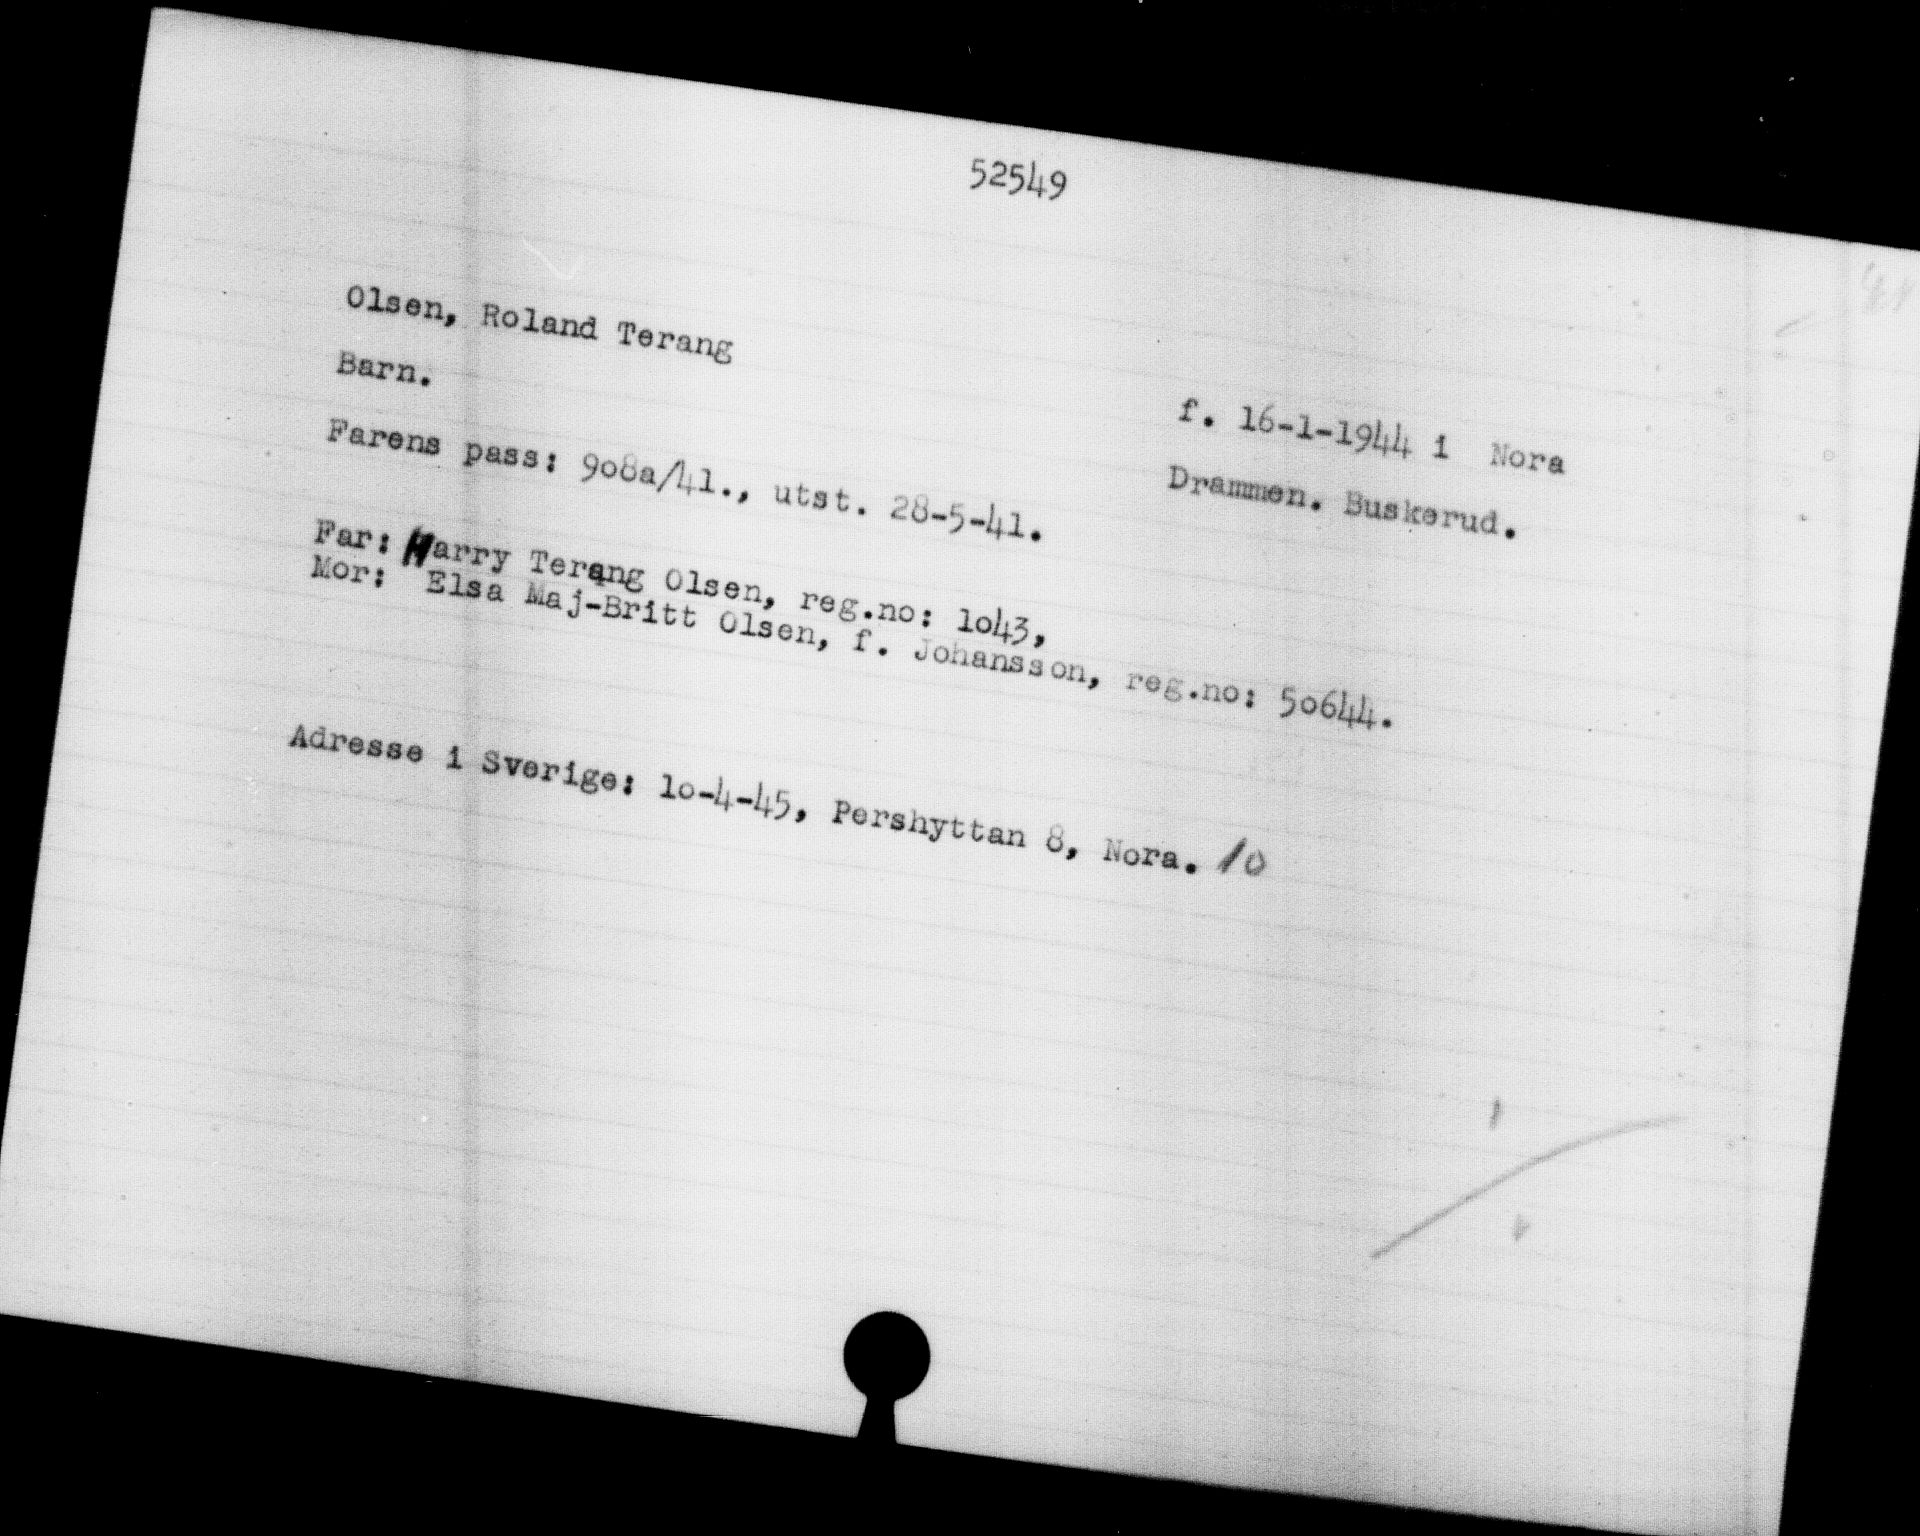 52549
Olsen, Roland Terang
f. 16-1-1944 i Nora
Barn.
Drammen. Buskerud.
Farens pass: 908a/41., utst. 28-5-41.
Far: Harry Terang Olsen, reg.no: 1043,
Mor: Elsa Maj-Britt Olsen, f. Johansson, reg.no: 50644.
Adresse i Sverige: 10-4-45, Pershyttan 8, Nora. 10